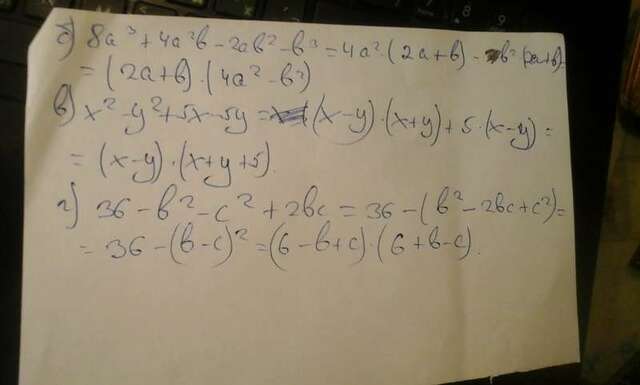 б) 8a³ + 4a²b - 2ab² - b³ = 4a² · (2a + b) - b² (2a + b) =
= (2a + b) · (4a² - b²)
в) x² - y² + 5x - 5y = (x - y) · (x + y) + 5 · (x - y) =
= (x - y) · (x + y + 5).
г) 36 - b² - c² + 2bc = 36 - (b² - 2bc + c²) =
= 36 - (b - c)² = (6 - b + c) · (6 + b - c).